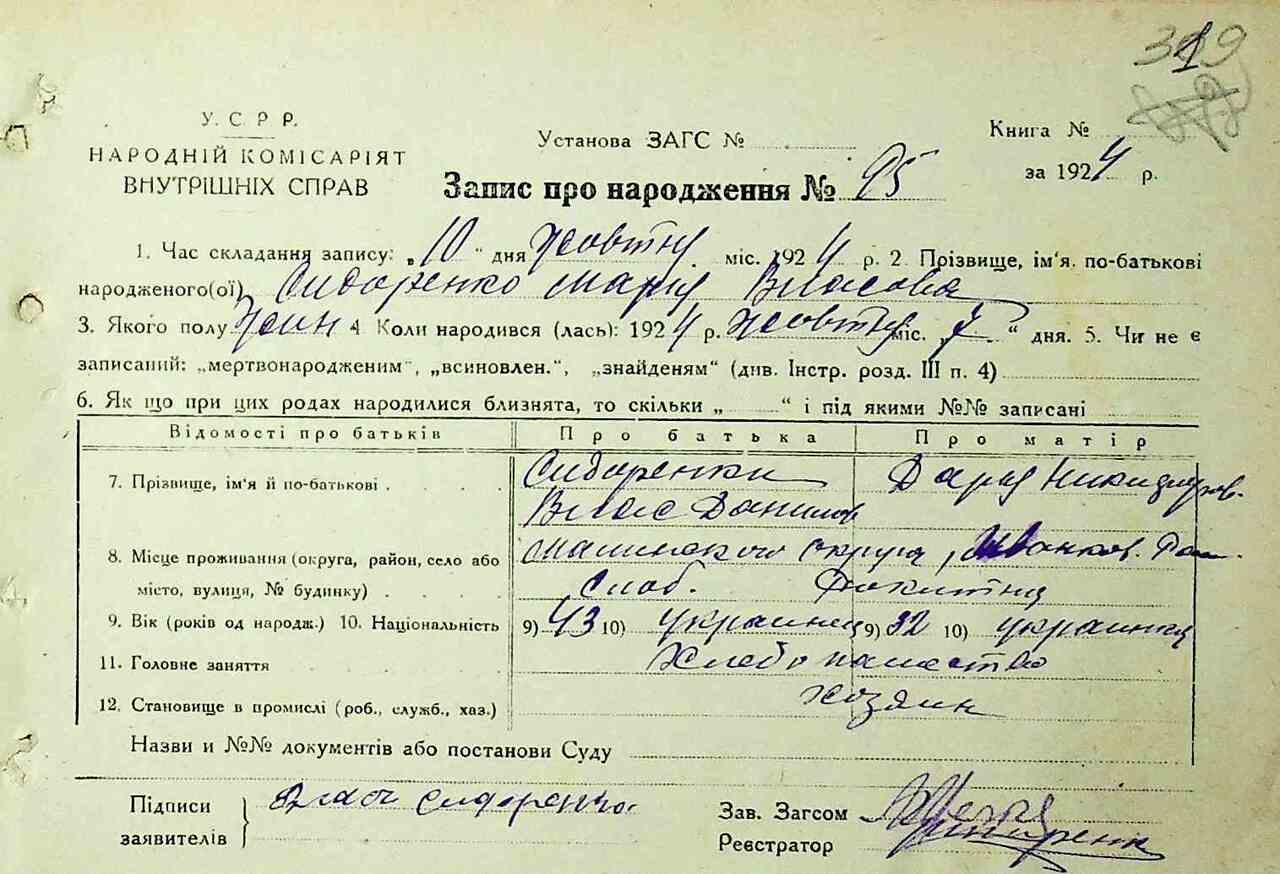 319
У. С. Р. Р.
НАРОДНІЙ КОМІСАРІЯТ
ВНУТРІШНІХ СПРАВ
Установа ЗАГС №
Книга №
за 1924 р.
Запис про народження № 95
1. Час складання запису: „10" дня Жовтня міс. 1924 р. 2. Прізвище, ім'я, по-батькові
народженого(ої) Сидоренко Мария Власова
3. Якого полу Жин 4. Коли народився (лась): 1924 р. Жовтня міс. „ “ дня. 5. Чи не є
записаний: „мертвонародженим", „всиновлен.", „знайденям" (див. Інстр. розд. III п. 4)
6. Як що при цих родах народилися близнята, то скільки „ “ і під якими №№ записані
Відомості про батьків Про батька Про матір
7. Прізвище, ім'я й по-батькові Сидоренки Дария Никифоров.
Влас Данилов
8. Місце проживання (округа, район, село або Малинского округа, Иванков. Рай.
місто, вулиця, № будинку) Слоб. Рокитна
9. Вік (років од народж.) 10. Національність 9) 43 10) украинец 9) 32 10) украинка
11. Головне заняття Хлебопашество
12. Становище в промислі (роб., служб., хаз.) хозяин
Назви и №№ документів або постанови Суду
Підписи Влас Сидоренко
заявителів
Зав. Загсом
Реєстратор